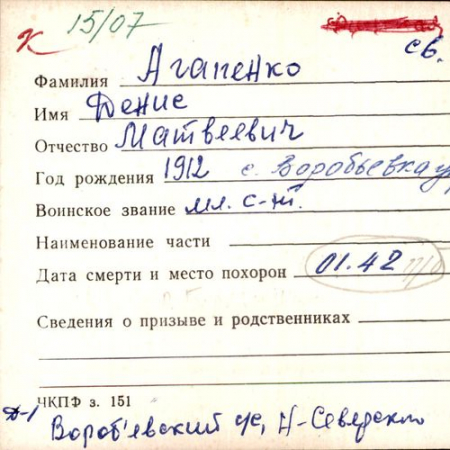 к 15/07
св.
Фамилия Агапенко
Имя Денис
Отчество Матвеевич
Год рождения 1912 с. Воробьевка у
Воинское звание мл. с-т.
Наименование части
Дата смерти и место похорон 01.42 п/в
Сведения о призыве и родственниках
ЧКПФ з. 151
Д-1 Вороб'евский с/с, Н-Северского